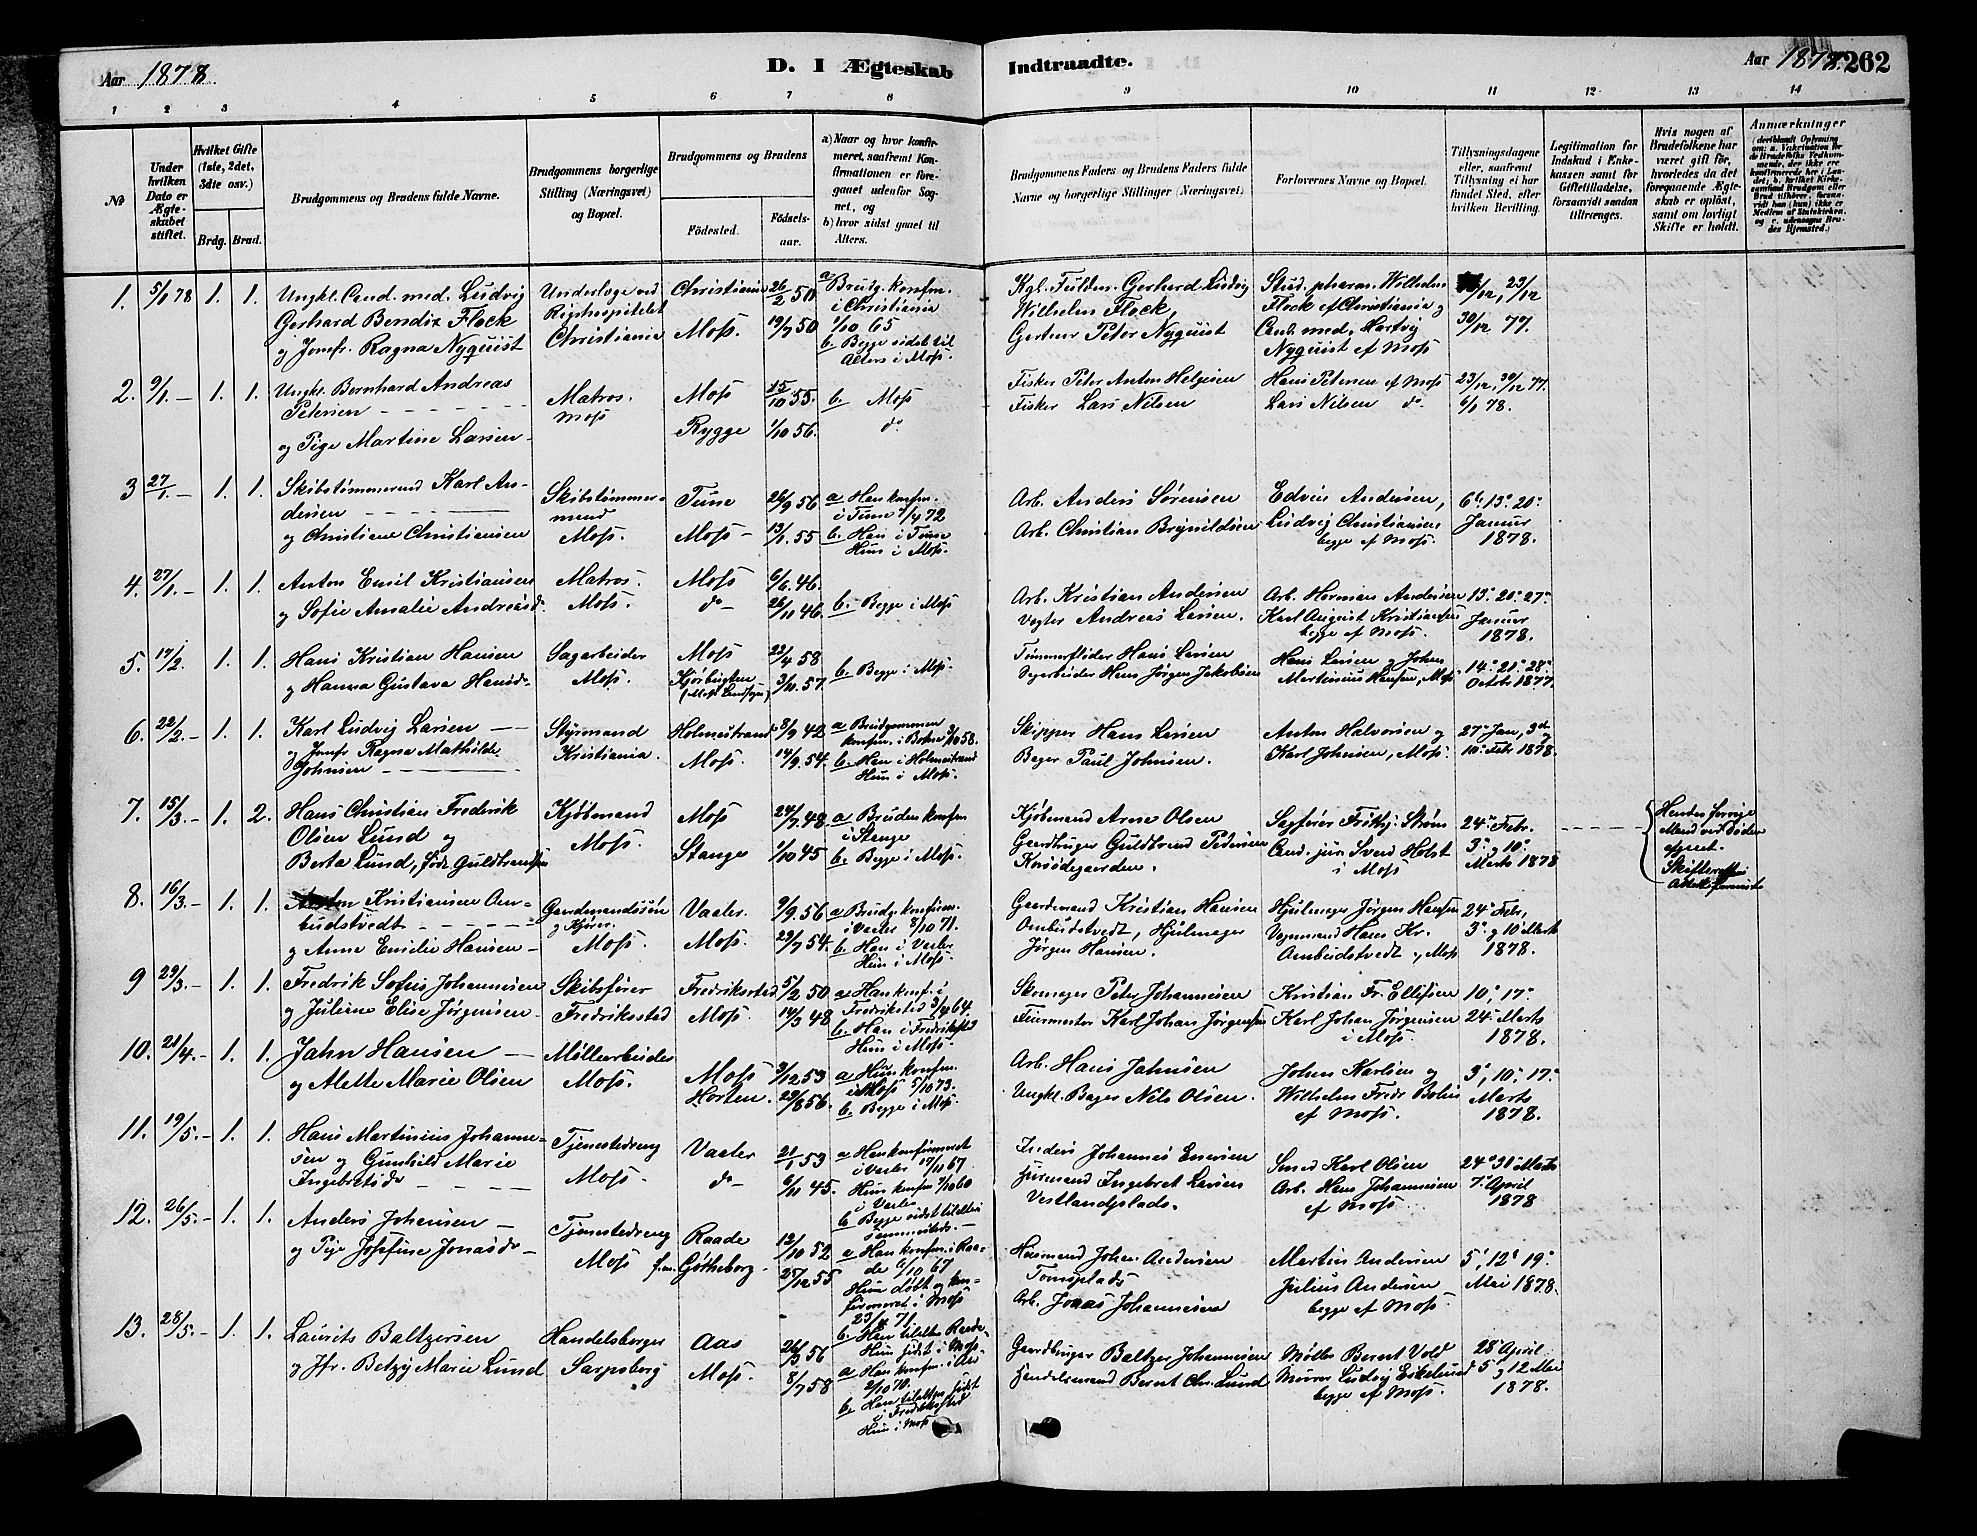 Aar 1878.
D. I Ægteskab
Indtraadte.
Aar 1878. 262
1 2 3 4 5 6 7 8 9 10 11 12 13 14
No
Under hvilken Dato er Ægteskabet stiftet.
Hvilket Gifte (1ste, 2det, 3dte osv.)
Brdg. Brud.
Brudgommens og Brudens fulde Navne.
Brudgommens borgerlige Stilling (Næringsvei) og Bopæl.
Brudgommens og Brudens
Fødested.
Fødselsaar.
a) Naar og hvor konfirmeret, saafremt Konfirmationen er foregaaet udenfor Sognet, og
b) hvor sidst gaaet til Alters.
Brudgommens Faders og Brudens Faders fulde Navne og borgerlige Stillinger (Næringsvei)
Forlovernes Navne og Bopæl.
Tillysningsdagene eller, saafremt Tillysning ei har fundet Sted, efter hvilken Bevilling.
Legitimation for Indskud i Enkekassen samt for Giftetilladelse, forsaavidt saadan tiltrænges.
Hvis nogen af Brudefolkene har været gift før, hvorledes da det foregaaende Ægteskab er opløst, samt om lovligt Skifte er holdt.
Anmærkninger
1. 5/1 78 1. 1. Ungkl. Cand. med. Ludvig
Gerhard Bendix Flock
og Jomfr. Ragna Nyquist
Underlæge ved
Rigshospitalet
Christiania
Christiania 26/2 50
Moss. 19/7 50
a Brudg. konfm.
i Christiania
1/10 65
b. Begge sidst til
Alters i Moss.
Kgl. Fuldm. Gerhard Ludvig
Wilhelm Flock,
Gartner Peter Nyquist
Stud. pharm. Wilhelm
Flock af Christiania og
Cand. med. Hartvig
Nyquist af Moss
/12, 23/12
30/12 77.
2. 9/1 - 1. 1. Ungkl. Bernhard Andreas
Petersen
og Pige Martine Larsen
Matros.
Moss
Moss 15/10 55.
Rygge 1/10 56.
b. Moss
do
Fisker Peter Anton Helgesen
Fisker Lars Nilsen
Hans Petersen af Moss
Lars Nilsen do
23/12, 30/12 77.
6/1 78.
3 27/1. - 1. 1. Skibstømmermd Karl An-
dersen
og Christiane Christiansen
Skibstømmer-
mand
Moss.
Tune 26/9 56
Moss 13/1. 55
a Han konfm.
i Tune 1/4 72
b. Han i Tune
Hun i Moss.
Arb. Anders Sørensen
Arb. Christian Brynildsen
Edvin Andersen,
Ludvig Christiansen
begge af Moss.
6te 13. 20.
Januar
1878.
4. 27/1. - 1. 1. Anton Emil Kristiansen
og Sofie Amalie Andreasd.
Matros.
Moss.
Moss 6/6. 46.
do 26/11 46.
b. Begge i Moss
Arb. Kristian Andersen
Vægter Andreas Larsen.
Arb. Herman Andersen
Karl August Kristiansen
begge af Moss.
13. 20. 27.
Januar
1878.
5. 17/2. 1. 1. Hans Kristian Hansen
og Hanna Gustava Hansd.
Sagarbeider
Moss.
Moss 23/4 58
3/11. 57.
b. Begge i Moss.
Tømmerfløder Hans Larsen
Sagarbeider Hans Jørgen Jakobsen
Hans Larsen og Johan
Martinius Hansen, Moss
14. 21. 28.
Octobr 1877.
6. 22/2. - 1. 1. Karl Ludvig Larsen
og Jomfr Ragna Mathilde
Johnsen
Styrmand
Kristiania.
Holmestrand 8/9 42
Moss. 14/9. 54.
a Brudgommen
konfm. i Botne 3/10 58.
b. Han i Holmestrand
Hun i Moss.
Skipper Hans Larsen
Bager Paul Johnsen.
Anton Halvorsen og
Karl Johnsen, Moss.
27. Jan, 3d og
10. Febr 1878.
7. 15/3. - 1. 2. Hans Christian Frederik
Olsen Lund og
Berta Lund, født Guldbransen
Kjøbmand
Moss.
Moss 24/7. 48
Stange 1/10 45
a Bruden konfm
i Stange
b. Begge i Moss.
Kjøbmand Arne Olsen
Gaardbruger Guldbrand Pedersen
Korsødegaarden.
Sagfører Frithj. Strøm
Cand. jur. Svend Holst
i Moss
24. Febr.
3. og 10.
Marts 1878
Hendes forrige
Mand ved Døden
afgaaet.
8. 16/3. - 1. 1. Kristiansen Am-
budstvedt
og Anne Emilie Hansen
Gaardmandssøn
Moss.
Vaaler. 9/9. 56
Moss. 23/7 54.
a Brudg. konfirm.
i Vaaler 8/10 71.
b. Han i Vaaler
Hun i Moss.
Gaardmand Kristian Hansen
Ambudstvedt, Hjulmager
Jørgen Hansen.
Hjulmager Jørgen Hansen
Vognmand Hans Kr.
Ambudstvedt, Moss
24. Febr,
3. og 10 Marts
1878.
9 29/3. - 1. 1. Fredrik Sofus Johannesen
og Juliane Elise Jørgensen
Skibsfører
Fredriksstad
Fredriksstad 5/2 50
Moss. 14/3 48
a Han konf. i
Fredriksstad 3/4 64.
b. Han i Fredrikstad
Hun i Moss.
Skomager Peter Johannesen
Fyrmester Karl Johan Jørgensen
Kristian Fr. Ellefsen
Karl Johan Jørgensen
i Moss.
10, 17.
24. Marts
1878.
10. 21/4. - 1. 1. Jahn Hansen
og Mette Marie Olsen
Møllearbeider
Moss.
Moss 3/12 53
Horten. 29/8 56.
a Hun konfm.
i Moss 5/10 73.
b. Begge i Moss.
Arb. Hans Jahnsen
Ungkl. Bager Nils Olsen.
Johan Karlsen og
Wilhelm Fredr Bohus
af Moss.
3., 10. 17.
Marts
1878.
11. 19/5. - 1. 1. Hans Martinius Johanne-
sen og Gunhild Marie
Ingebretsd.
Tjenestedreng
Moss.
Vaaler 21/1 53
do 6/11 45.
a Han konfirmeret
i Vaaler 17/11 67.
Hun konfm 7/10 60
i Vaaler
b Begge sidst tilalters
sammesteds.
Inderst Johannes Enersen
Husmand Ingebret Larsen
Vestlandsplads.
Smed Karl Olsen
Arb. Hans Johannesen
af Moss.
24. 31. Marts
7. April
1878
12. 26/5. - 1. 1. Anders Johansen
og Pige Josefine Jonasd.
Tjenestedreng
Moss
Raade 12/10 52
Gøtheborg. 25/12 55
a Han konfm. i Raa-
de 6/10 67
Hun døbt og kon-
firmeret i Moss
23/4 71.
b. Han tilalters Raade.
Hun sidst i Moss
Husmand Johan Andersen
Tomsplads
Arb. Jonas Johannesen
Martin Andersen
Julius Andersen
begge af Moss.
5, 12. 19.
Mai 1878.
13. 28/5. - 1. 1. Laurits Baltzersen
og Jfr. Betzy Marie Lund
Handelsborger
Sarpsborg
Aas 26/3 56
Moss. 8/7 58
a Han konfm. i Aas
2/10 70.
b. Han tilalters sidst
i Fredriksstad
Hun i Moss
Gaardbruger Baltzer Johannesen
Handelsmand Bernt Chr. Lund
Møller Bernt Vold
Murer Ludvig Eskelund
begge af Moss.
28 April
5 og 12 Mai
1878.